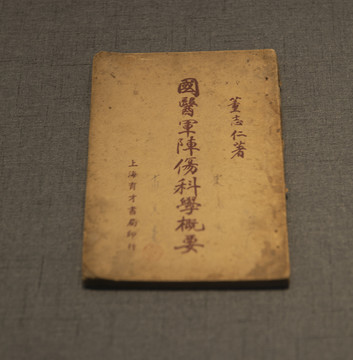 董志仁著
國醫軍陣傷科學概要
上海育才書局印行